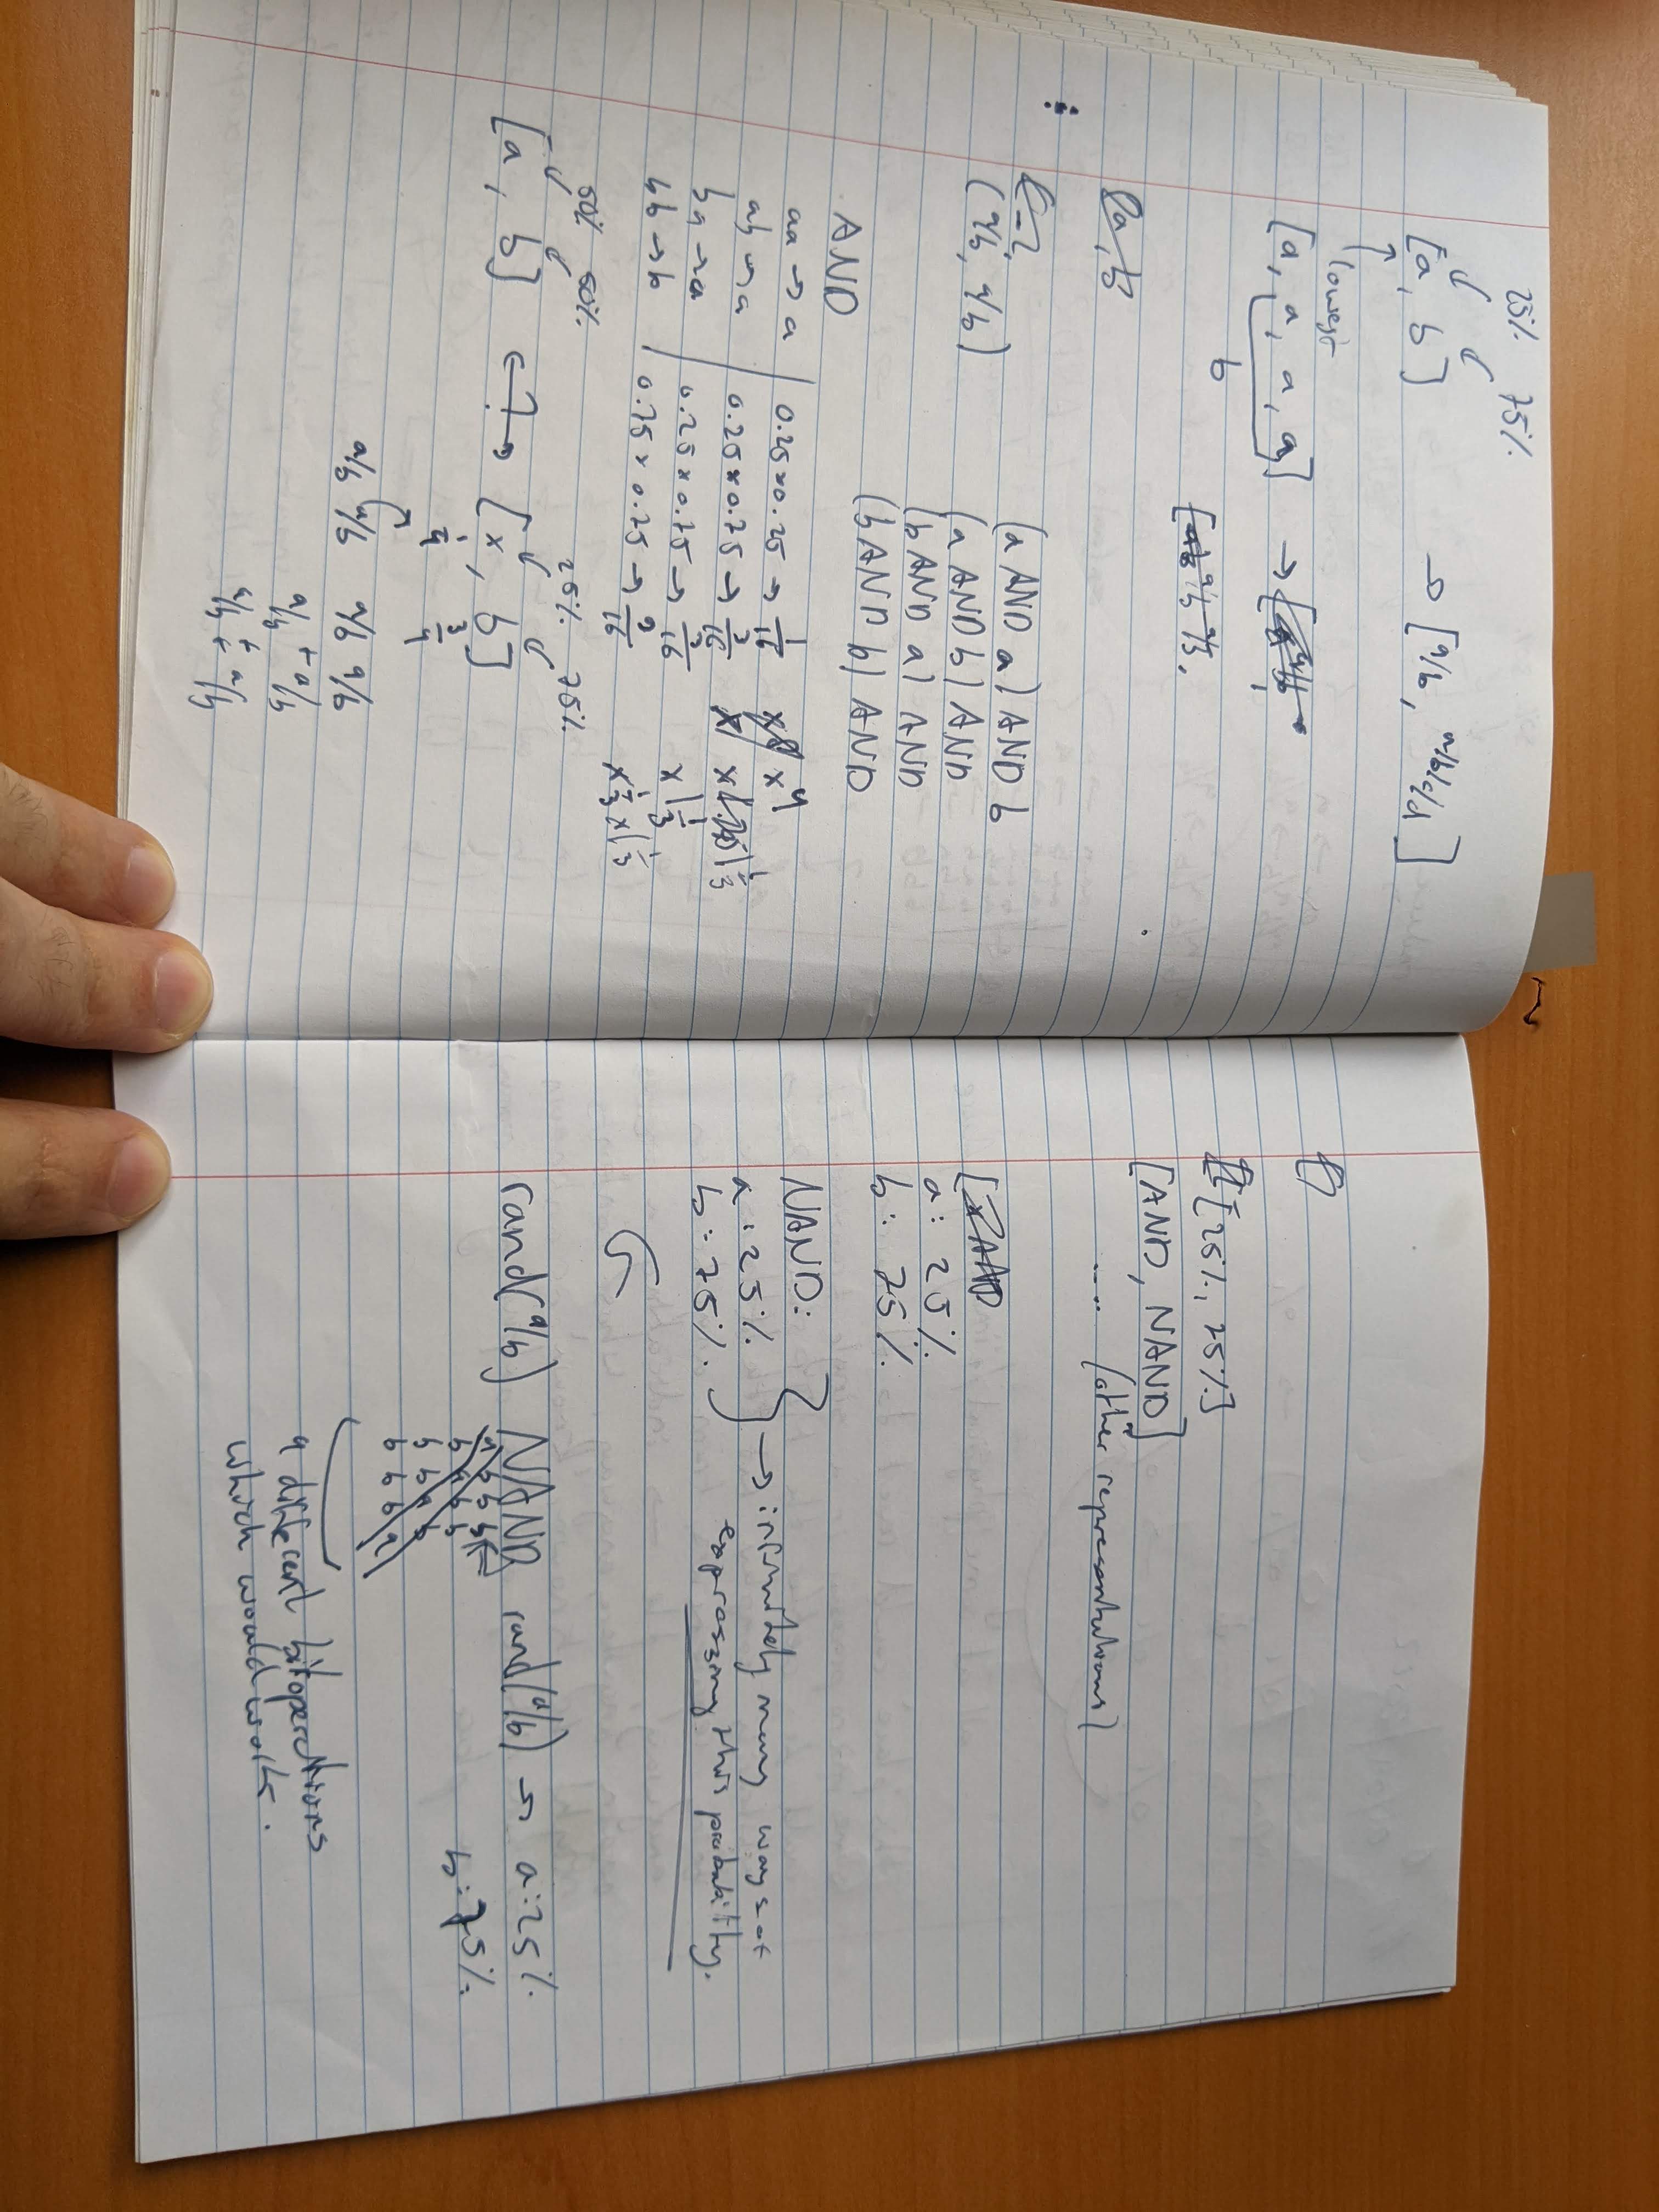 25% 75%
[a, b] → [a/b, a/b/c/d]
lowest
[a, a, a, a] →
b
a/b a/b.
[a, b
(a/b, a/b)
(a AND a) AND b
(a AND b) AND
(b AND a) AND
(b AND b) AND
AND
aa → a 0.25 × 0.25 → 1/16 × 4
ab → a 0.25 × 0.75 → 3/16 × 1 1/3
ba → a 0.25 × 0.75 → 3/16 × 1 1/3
bb → b 0.75 × 0.75 → 9/16 × 1/3
50% 50% 25% 75%
[a, b] [x, b]
1/4 3/4
a/b a/b a/b a/b
a/b + a/b
a/b + a/b
[25%, 25%]
[AND, NAND]
.... (other representations)
a: 25%
b: 75%
NAND:
a: 25%
b: 75%.
→ infinitely many ways of
expressing this probability.
rand(a/b) NAND rand(a/b) → a: 25%
b: 75%
a b b b
b a b b
b b a b
b b b a
4 different bitoperations
which would work.